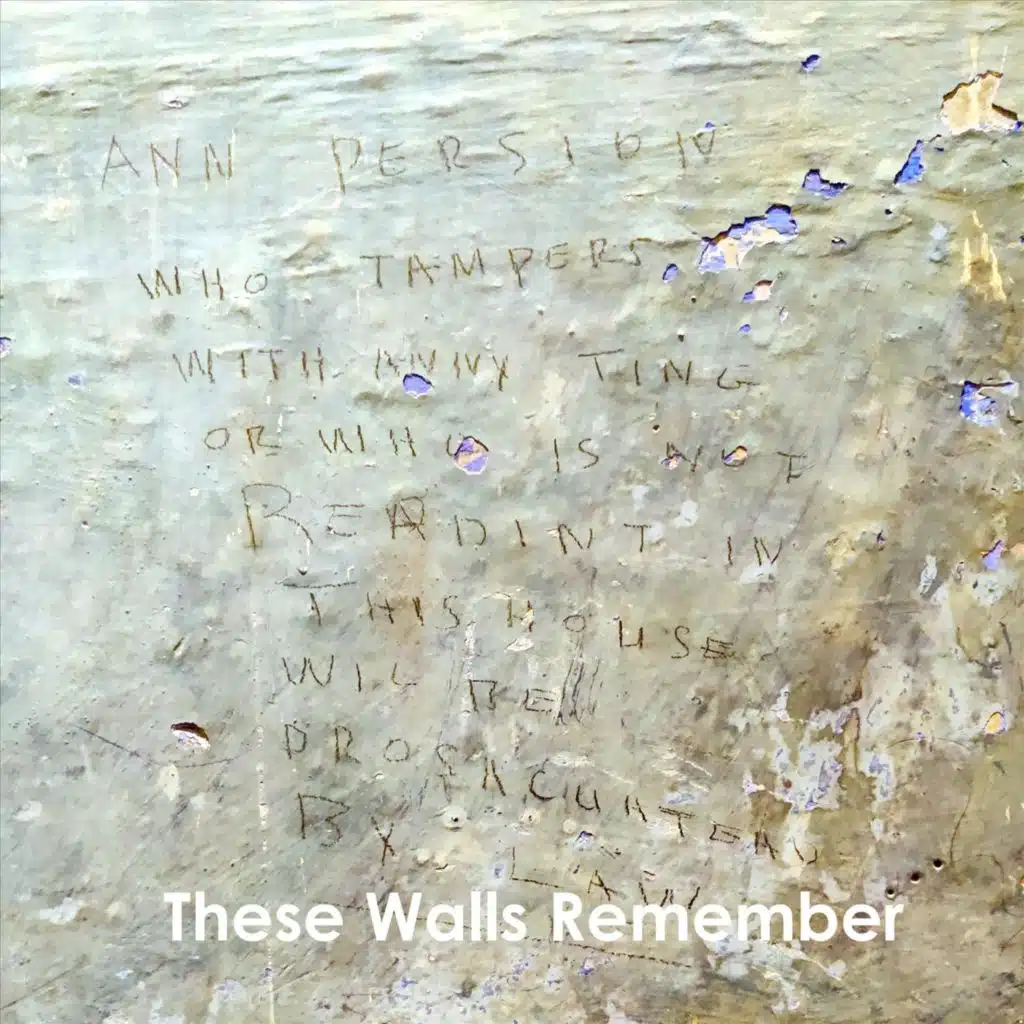 ANN PERSION
WHO TAMPERS
WITH ANNY TING
OR WHO IS NOT
READINT IN
THIS HOUSE
WIL BE
PROSACUATEAD
BY LAW
These Walls Remember